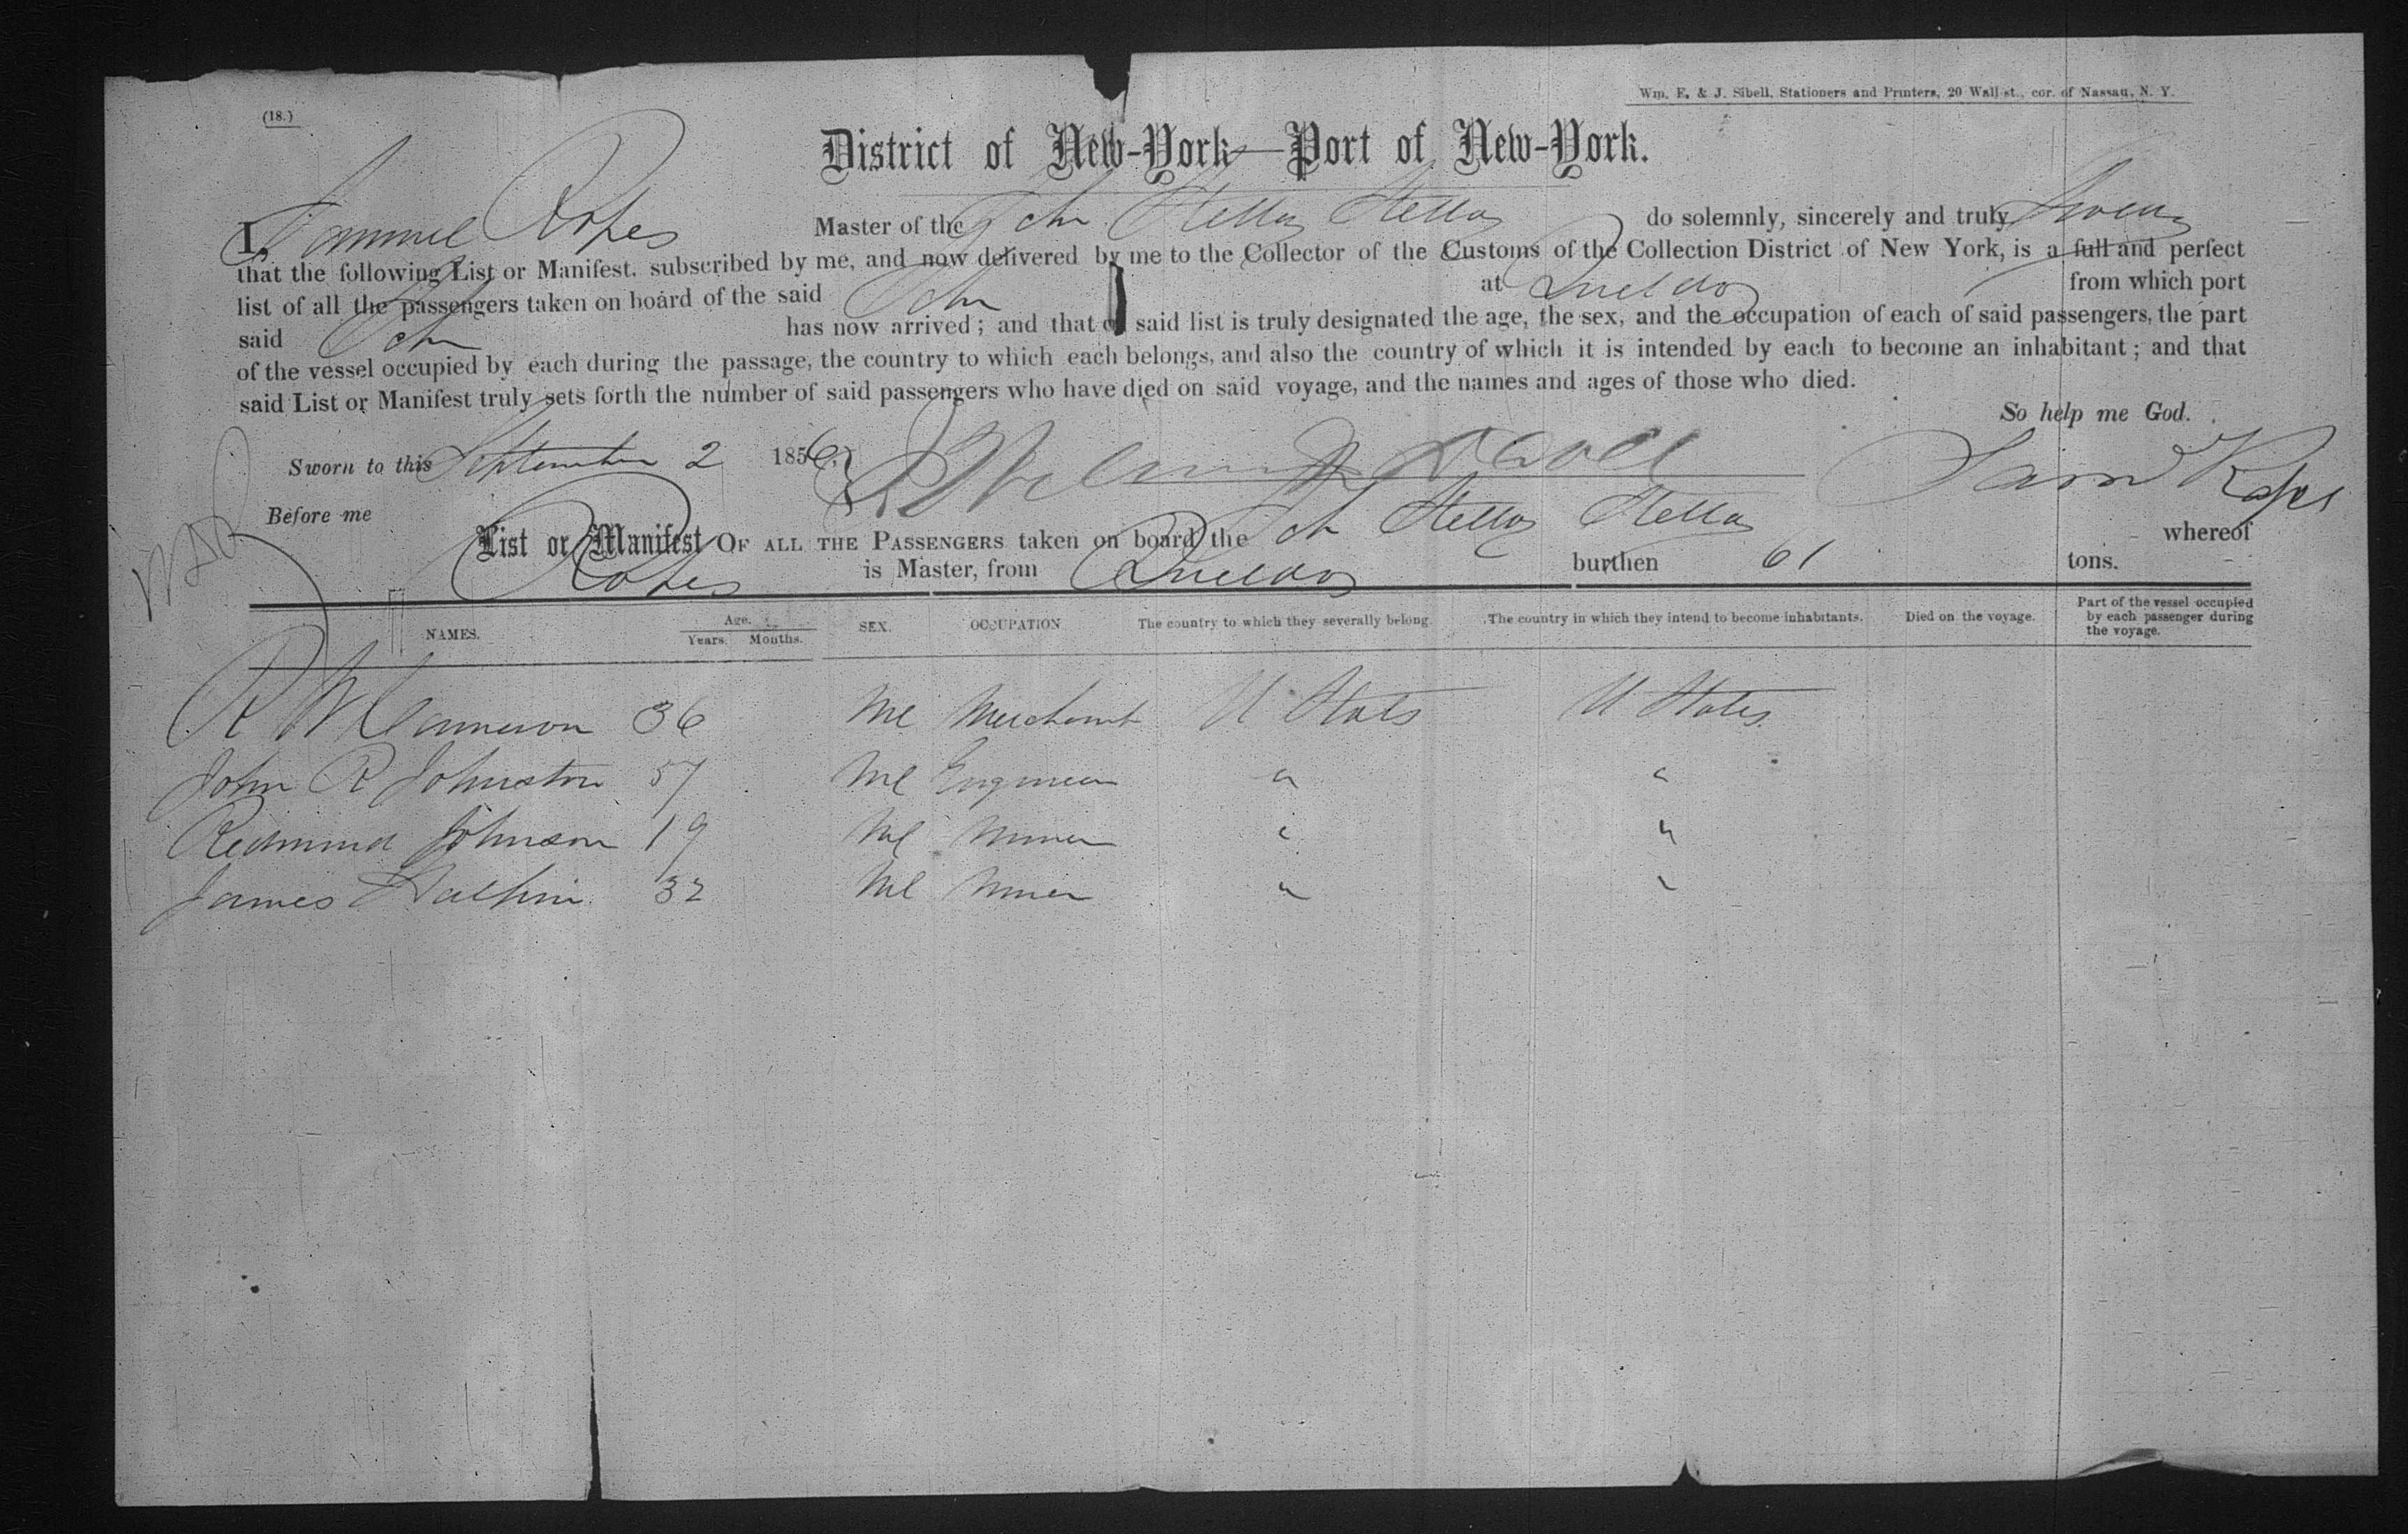 (18.)
Wm. E. & J. Sibell, Stationers and Printers, 20 Wall-st., cor. of Nassau, N. Y.
District of New-York—Port of New-York.
I, Samuel Ropes Master of the Sch Stella do solemnly, sincerely and truly Swear
that the following List or Manifest, subscribed by me, and now delivered by me to the Collector of the Customs of the Collection District of New York, is a full and perfect
list of all the passengers taken on board of the said Sch at from which port
said Sch has now arrived; and that on said list is truly designated the age, the sex, and the occupation of each of said passengers, the part
of the vessel occupied by each during the passage, the country to which each belongs, and also the country of which it is intended by each to become an inhabitant; and that
said List or Manifest truly sets forth the number of said passengers who have died on said voyage, and the names and ages of those who died.
So help me God.
Sworn to this September 2 1856.
Saml Ropes
Before me
List or Manifest OF ALL THE PASSENGERS taken on board the Sch Stella Stella whereof
Ropes is Master, from burthen 61 tons.
NAMES. Age. Years. Months. SEX. OCCUPATION The country to which they severally belong. The country in which they intend to become inhabitants. Died on the voyage. Part of the vessel occupied by each passenger during the voyage.
R W Cameron 36 Ml Merchant U States U States
John R Johnston 57 Ml Engineer " "
Redmund Johnson 19 Ml Miner " "
James 32 Ml Miner " "